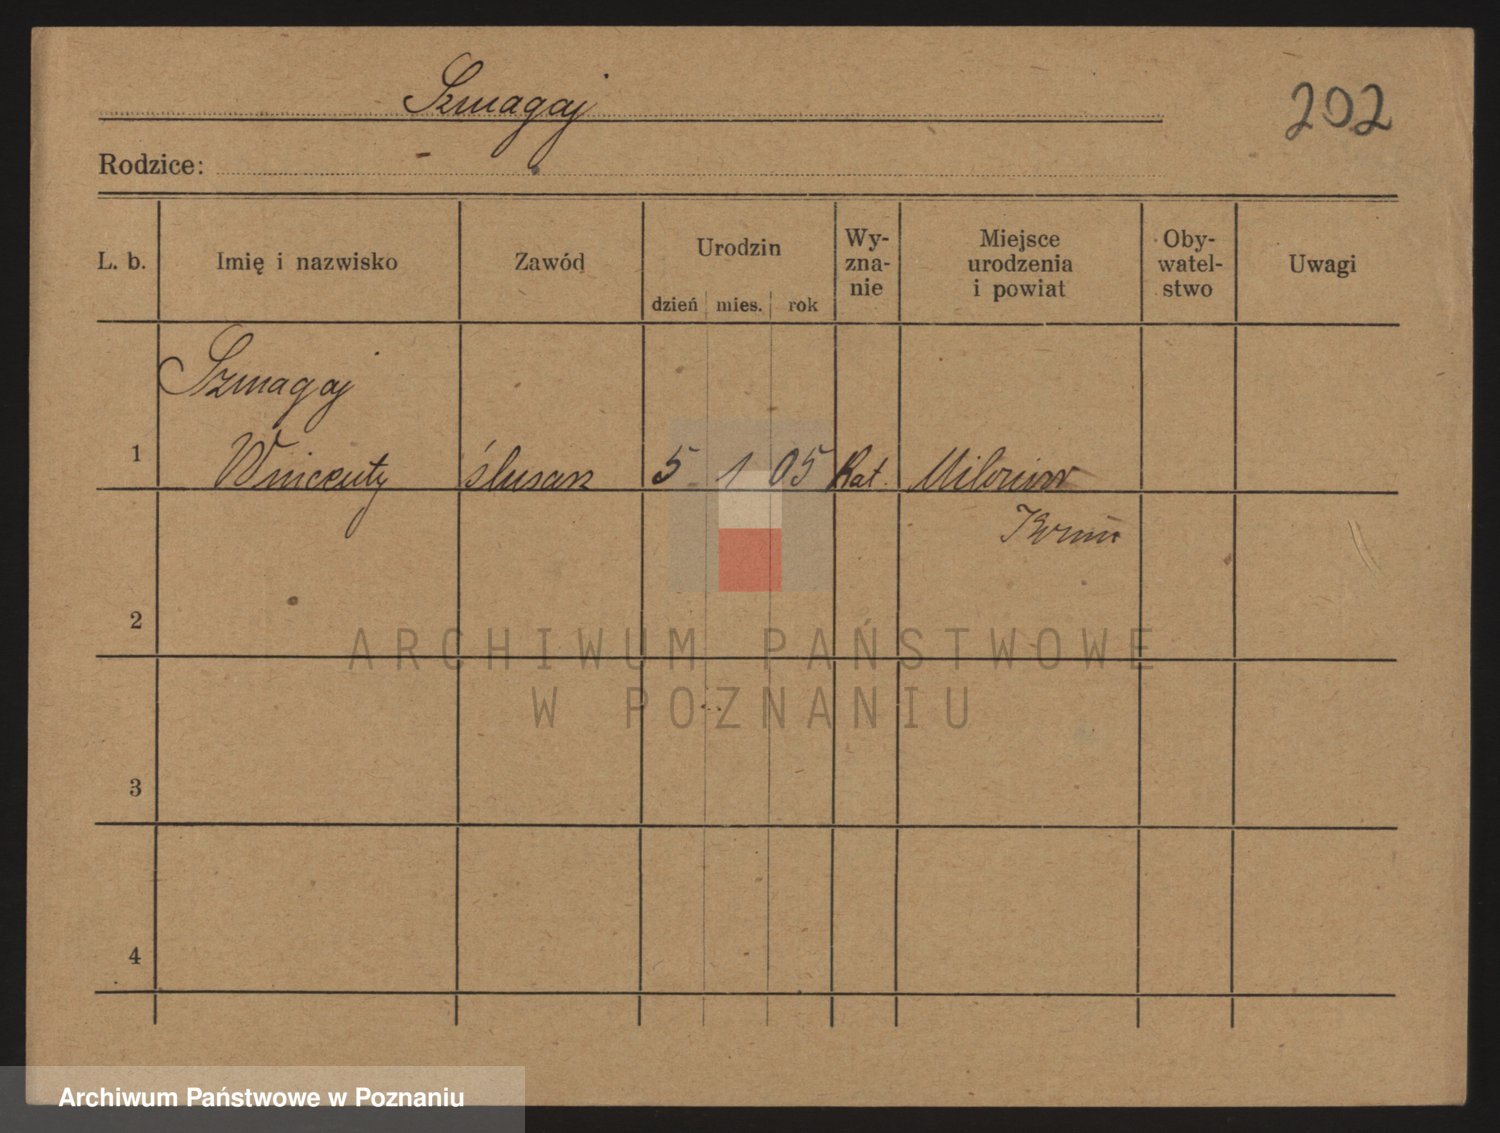 Szmagaj
202
Rodzice: -
L. b. Imię i nazwisko Zawód Urodzin dzień mies. rok Wy-zna-nie Miejsce urodzenia i powiat Oby-watel-stwo Uwagi
Szmagaj
1 Wincenty ślusarz 5 1 05 Kat.
2
3
4
ARCHIWUM PAŃSTWOWE
W POZNANIU
Archiwum Państwowe w Poznaniu